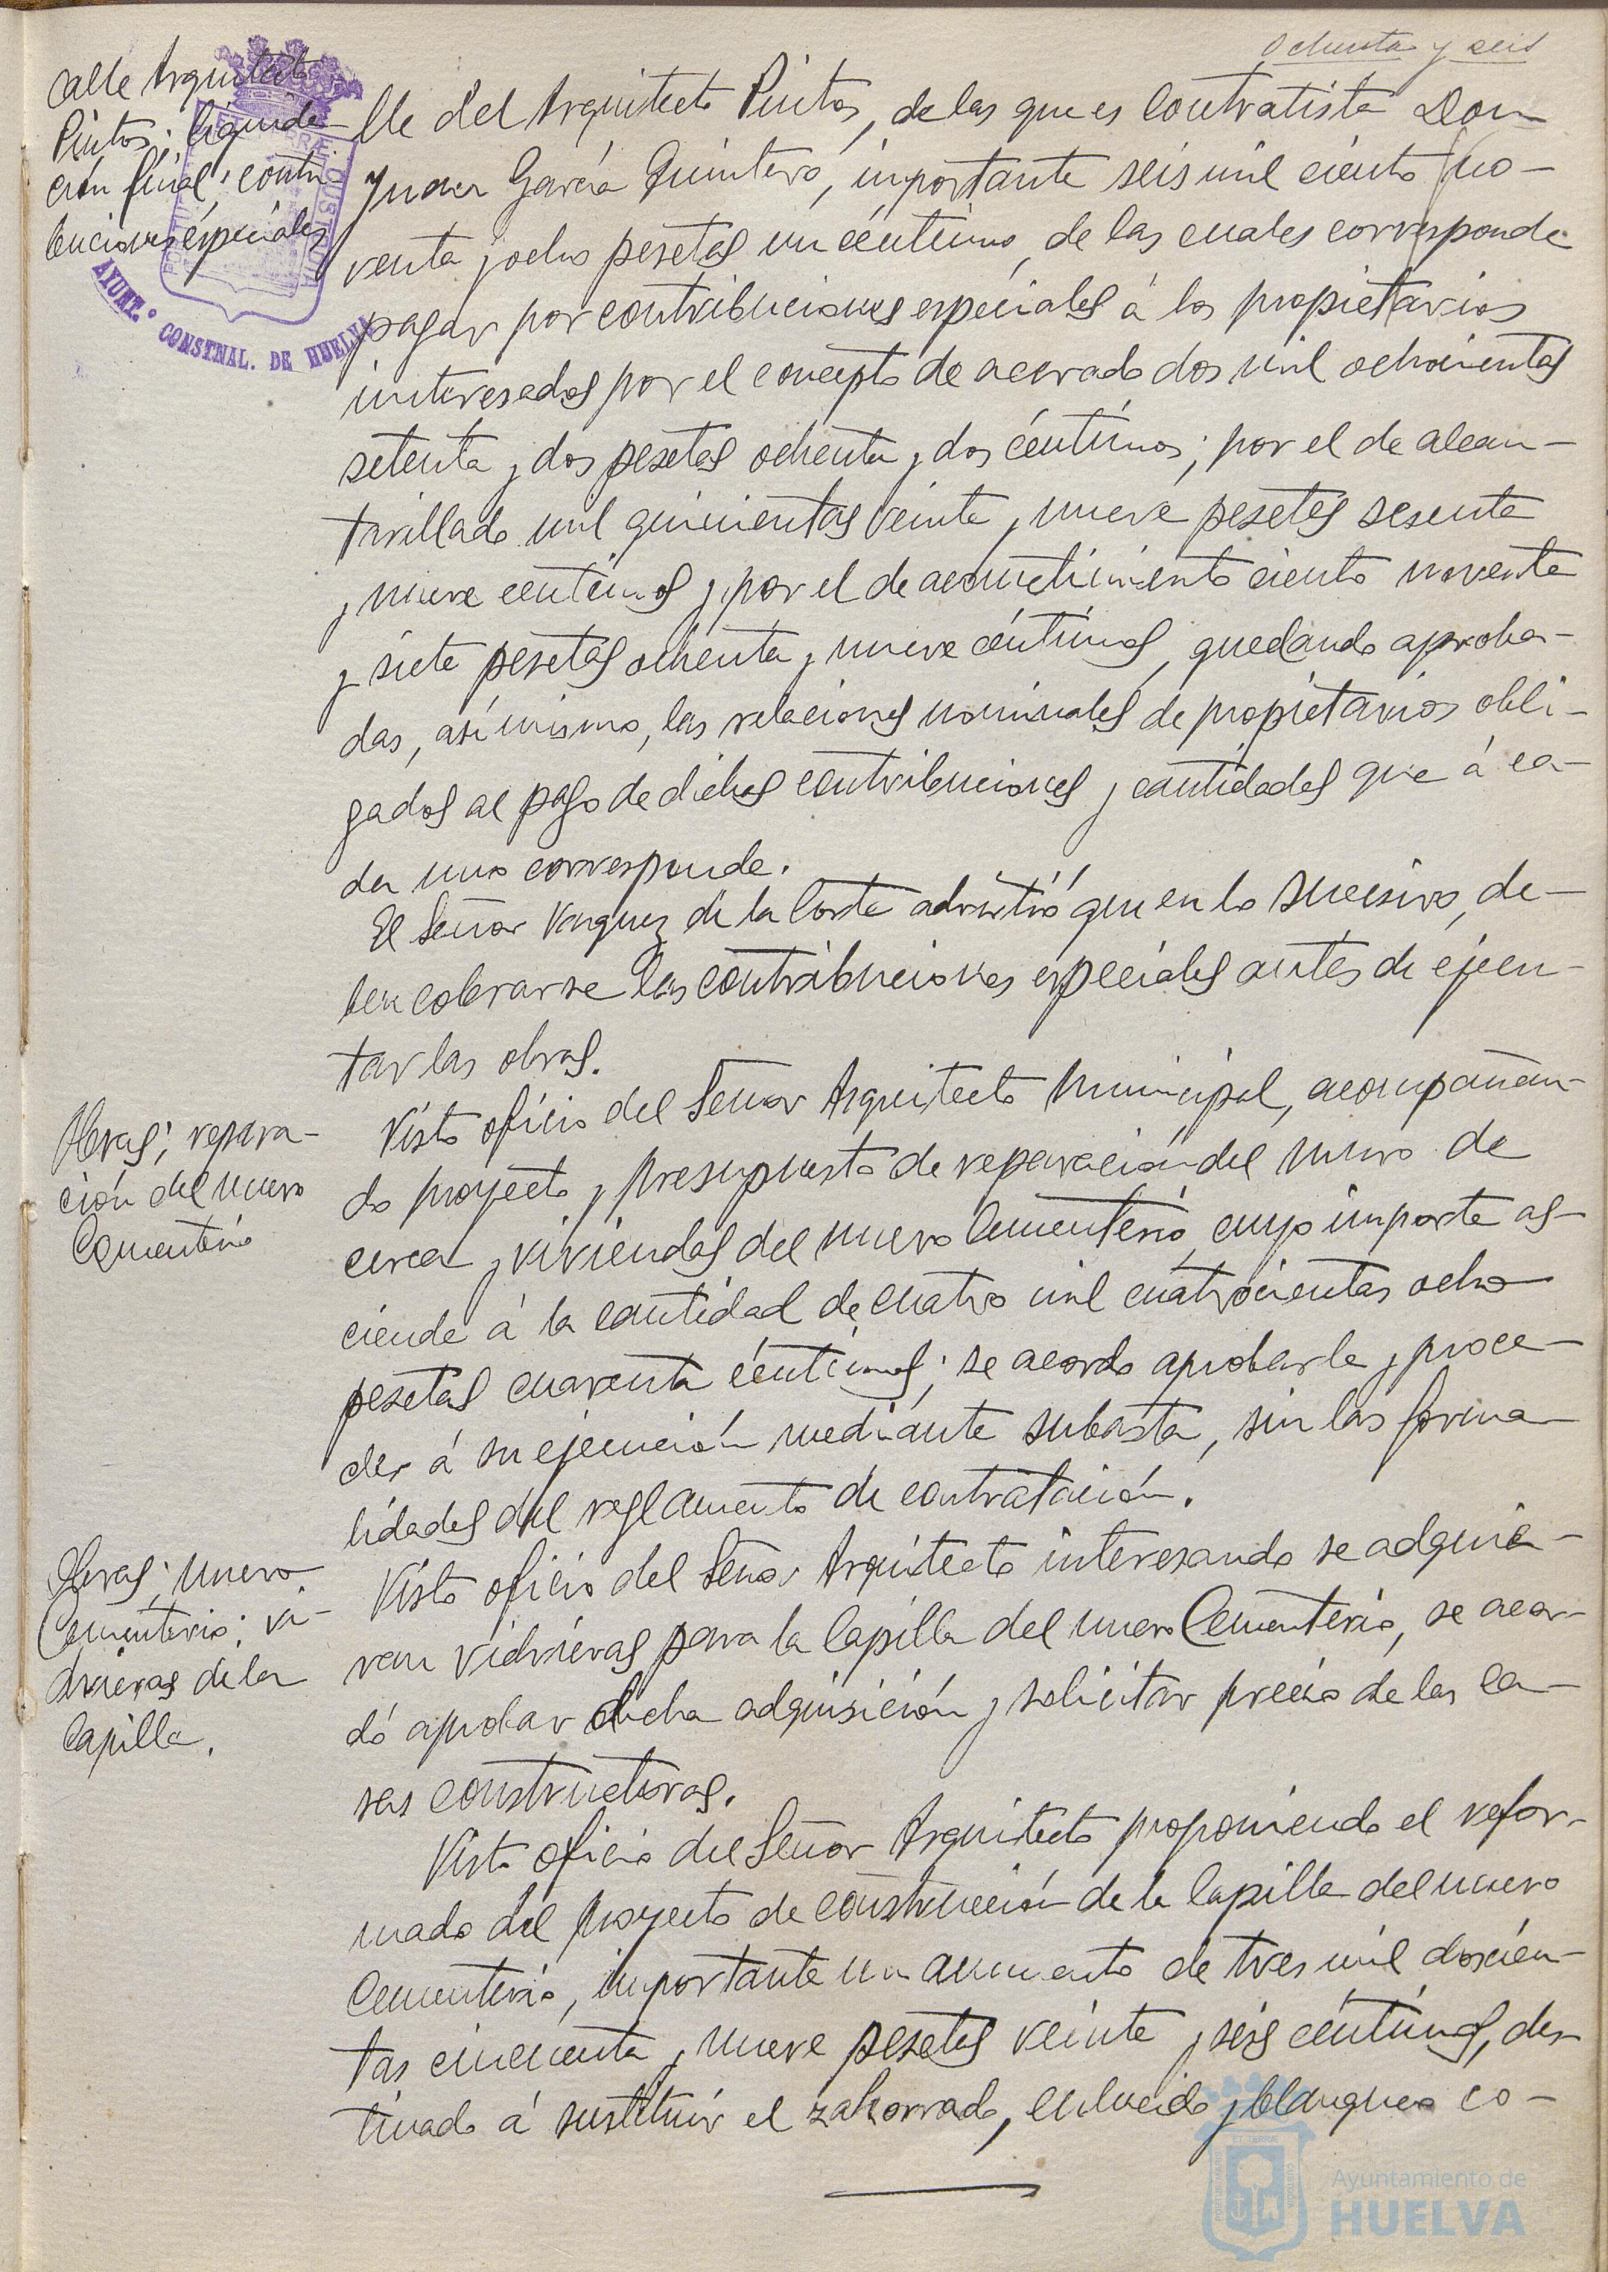 Ochenta y seis
Calle Arquitecto
Pintos; liquida-
ción final; contri
buciones especiales
AYUNT.º CONSTNAL. DE HUELVA
lle del Arquitecto Pintos, de las que es contratista Don
Juan García Quintero, importante seis mil ciento no-
venta y ocho pesetas un céntimo, de las cuales corresponde
pagar por contribuciones especiales á los propietarios
interesados por el concepto de acerado dos mil ochocientas
setenta y dos pesetas ochenta y dos céntimos; por el de alcan-
tarillado mil quinientas veinte y nueve pesetas sesenta
y nueve centimos y por el de acometimiento ciento noventa
y siete pesetas ochenta y nueve céntimos, quedando aproba-
das, asímismo, las relaciones nominales de propietarios obli-
gados al pago de dichas contribuciones y cantidades que á ca-
da uno corresponde.
El Señor Vazquez de la Corte advirtió que en lo sucesivo, de-
ben cobrarse las contribuciones especiales antes de ejecu-
tar las obras.
Obras; repara-
ción del nuevo
Cementerio
Visto oficio del Señor Arquitecto Municipal, acompañan-
do proyecto y presupuesto de reparación del muro de
cerca y viviendas del nuevo Cementerio, cuyo importe as-
ciende á la cantidad de cuatro mil cuatrocientas ocho
pesetas cuarenta céntimos; se acordó aprobarle y proce-
der á su ejecución mediante subasta, sin las forma-
lidades del reglamento de contratación.
Obras; nuevo
Cementerio; vi-
drieras de la
Capilla.
Visto oficio del Señor Arquitecto interesando se adquie-
ran vidrieras para la Capilla del nuevo Cementerio, se acor-
dó aprobar dicha adquisición y solicitar precio de las ca-
sas constructoras.
Visto oficio del Señor Arquitecto proponiendo el refor-
mado del proyecto de construcción de la Capilla del nuevo
Cementerio, importante un aumento de tres mil doscien-
tas cincuenta y nueve pesetas veinte y seis céntimos, des-
tinado á sustituir el zahorrado, enlucido y blanqueo co-
Ayuntamiento de
HUELVA